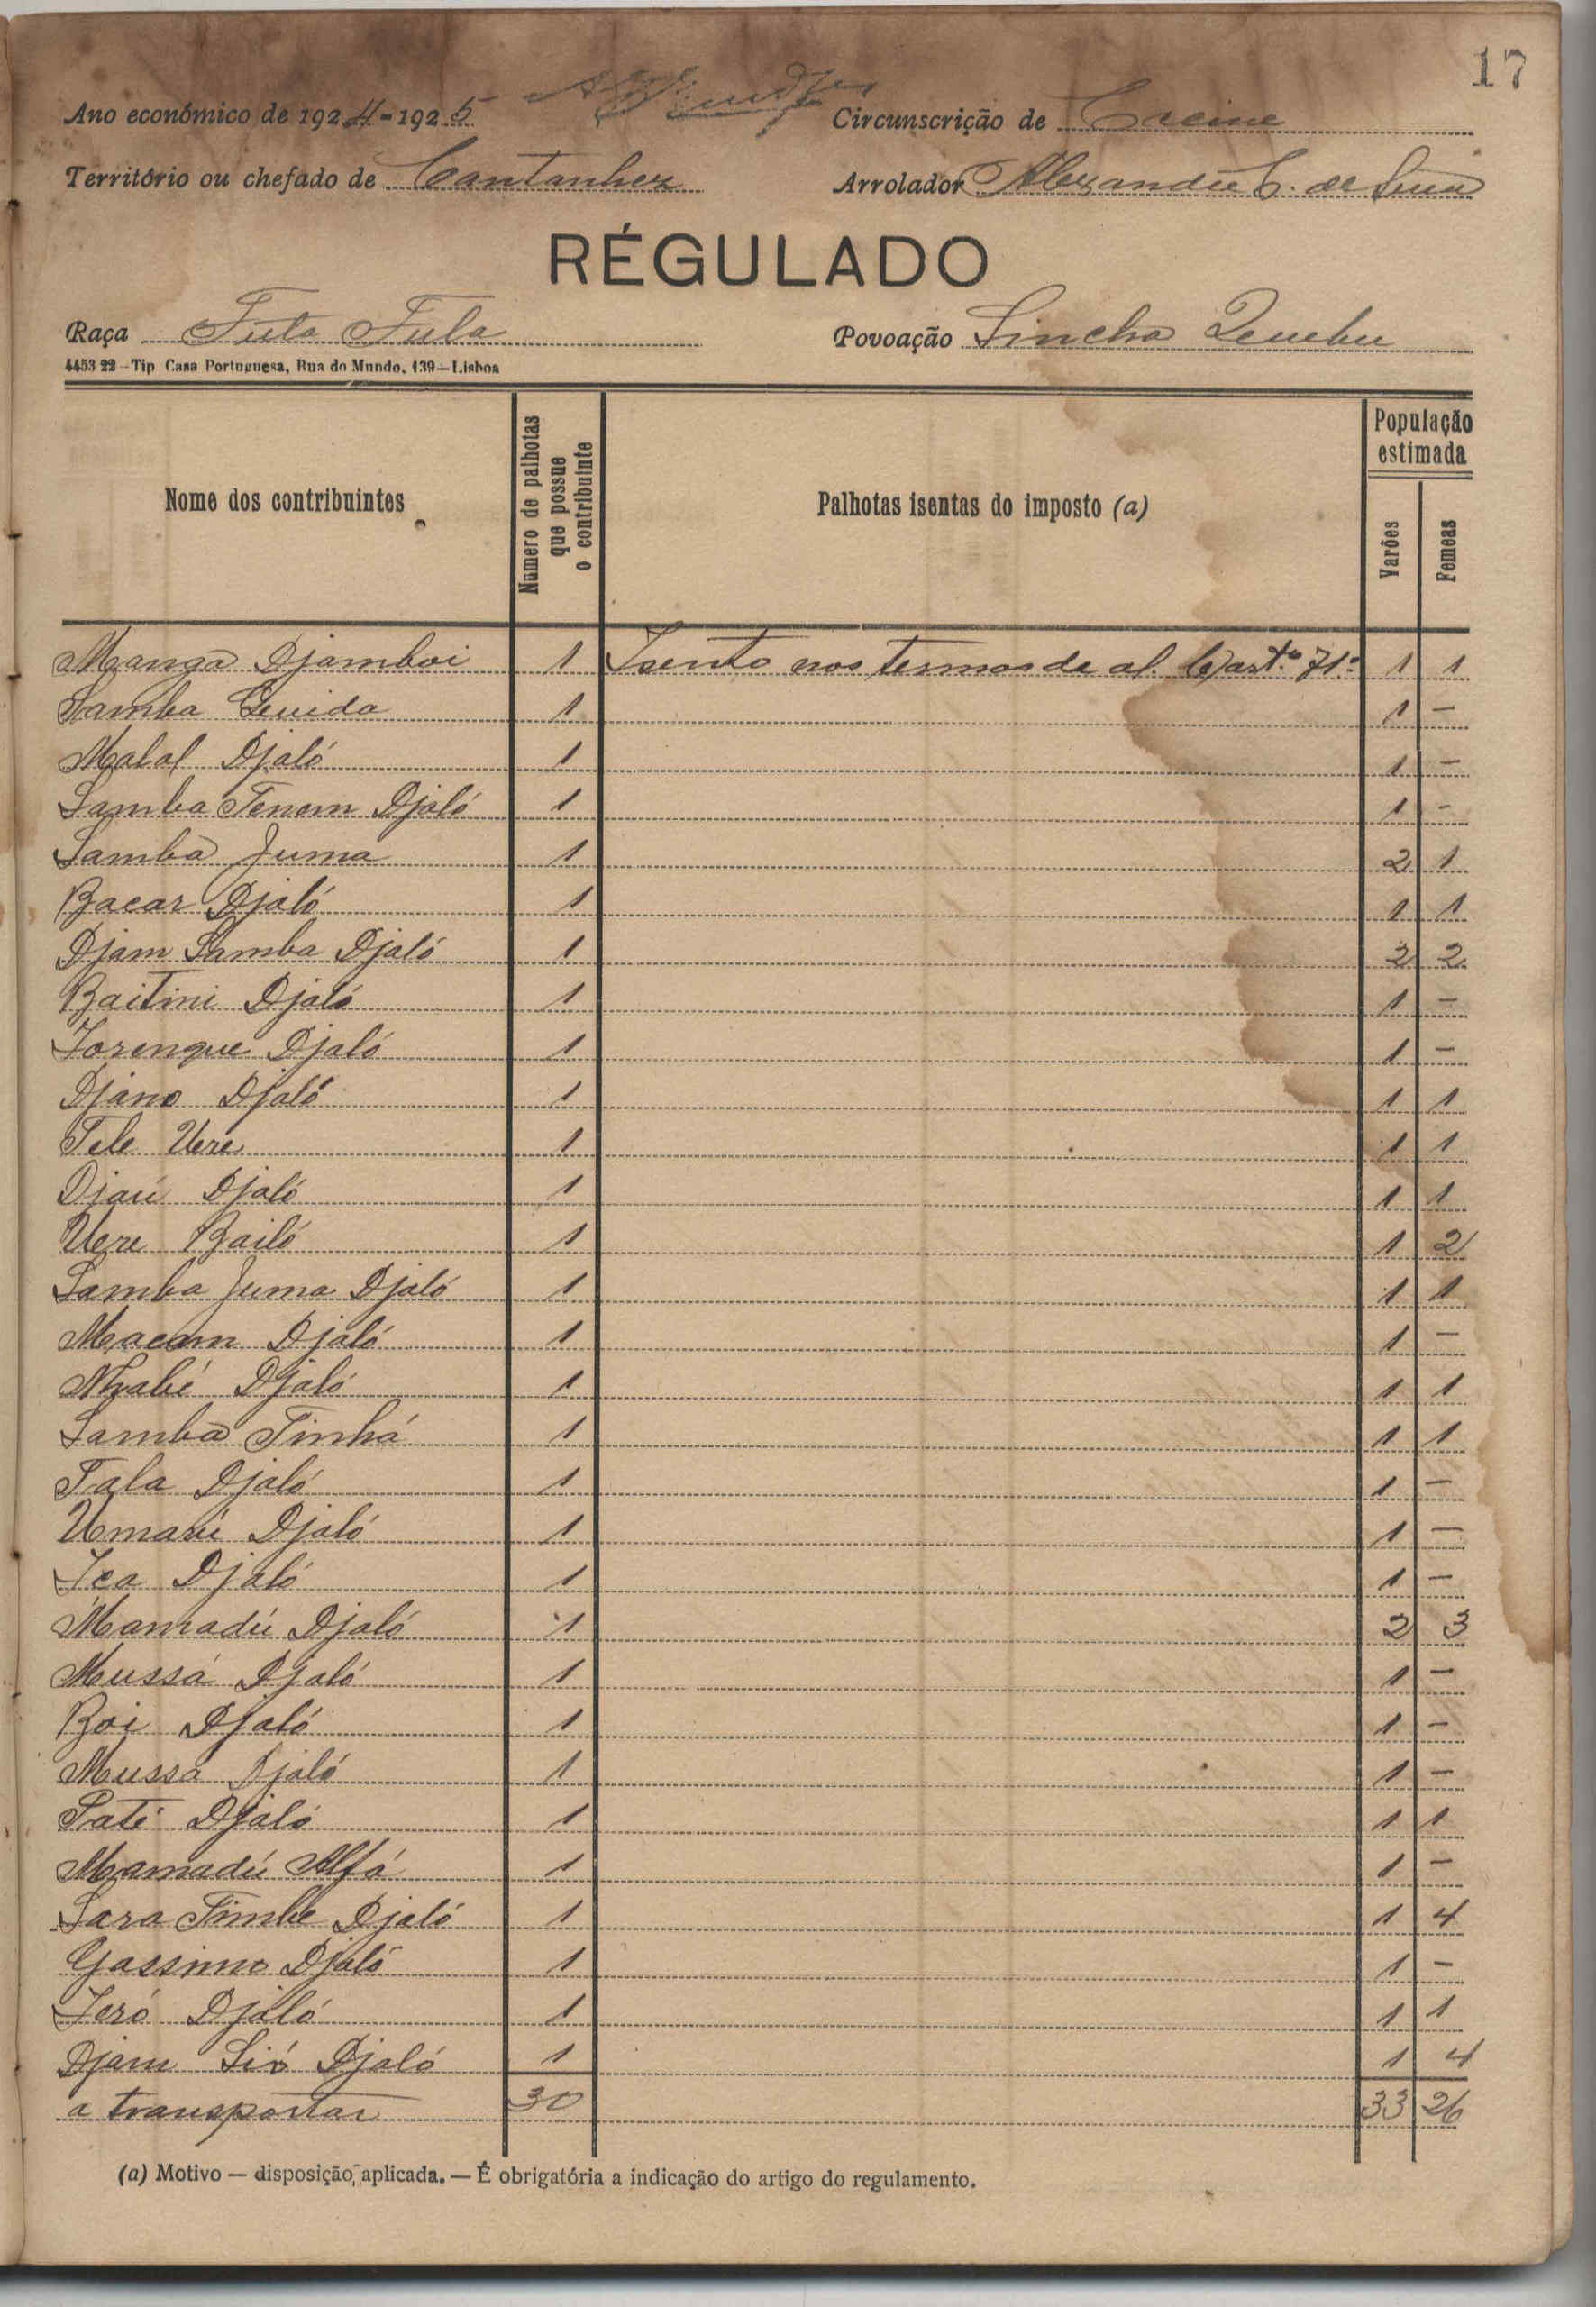 17
Ano económico de 1924-1925 Circunscrição de Cacine
Território ou chefado de Cantanhez Arrolador Alexandre
RÉGULADO
Raça Futa Fula Povoação Sincha Quebu
4453 22 - Tip Casa Portuguesa, Rua do Mundo, 139 - Lisboa
Nome dos contribuintes Número de palhotas que possue o contribuinte Palhotas isentas do imposto (a) População estimada Varões Femeas
Manga Djamboi 1 Isento nos termos de al. b) artº 71º 1 1
Samba Gueida 1 1 —
Malal Djaló 1 1 —
Samba Tenem Djaló 1 1 -
Samba Juma 1 2 1
Bacar Djaló 1 1 1
Djam Samba Djaló 1 2 2
Baitini Djaló 1 1 —
Iorenque Djaló 1 1 —
Djano Djaló 1 1 1
Tele Uere 1 1 1
Djaú Djaló 1 1 1
Uere Bailó 1 1 2
Samba Juma Djaló 1 1 1
Macam Djaló 1 1 —
Nhabé Djaló 1 1 1
Samba Tinhá 1 1 1
Tala Djaló 1 1 —
Umarú Djaló 1 1 —
Iea Djaló 1 1 —
Mamadú Djaló 1 2 3
Mussá Djaló 1 1 —
Boi Djaló 1 1 —
Mussa Djaló 1 1 —
Paté Djaló 1 1 1
Mamadú Alfá 1 1 —
Sara Timbe Djaló 1 1 4
Gassimo Djaló 1 1 —
Ieró Djaló 1 1 1
Djam Sió Djaló 1 1 4
a transportar 30 33 26
(a) Motivo — disposição, aplicada. — É obrigatória a indicação do artigo do regulamento.